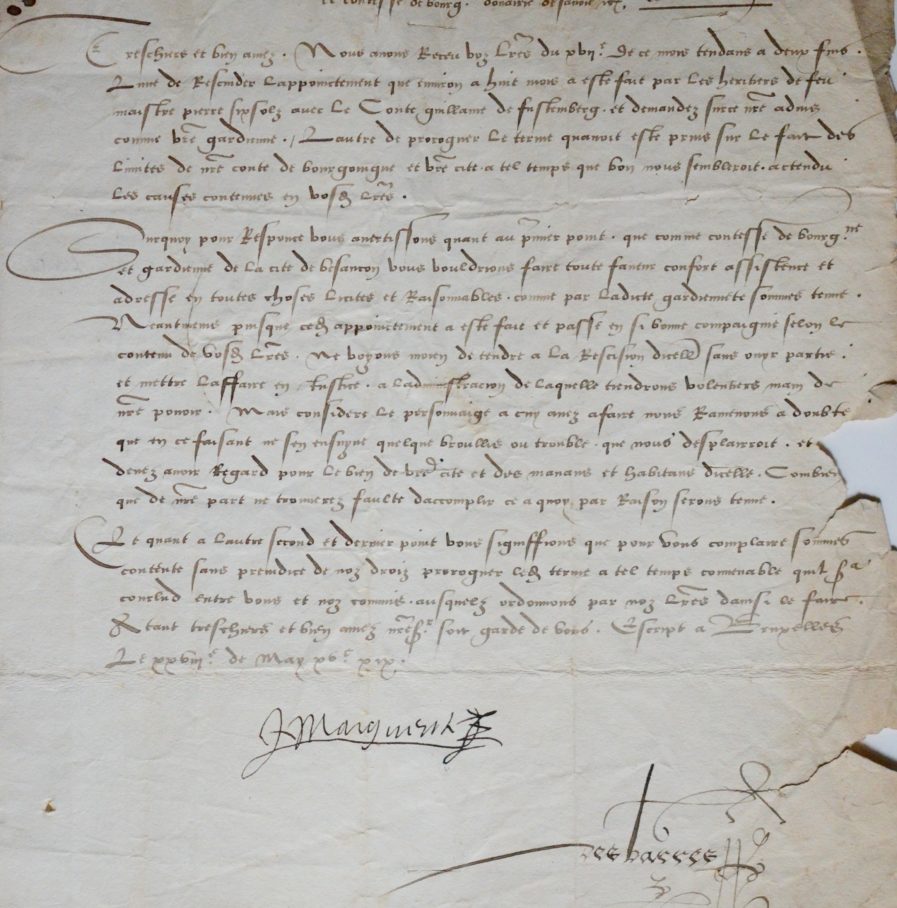 et contesse de bourgᵉ. douairiere de savoie
Treschiers et bien amez. Nous avons Receu voz Lr̃es du xviiᵉ. De ce mois tendans a deux fins.
L'une de Rescinder Lappoinctement que environ a huit mois a este fait par Les heritiers de feu
maistre pierre avec Le Conte guillame de fustemberg. et demandez surce nr̃e advis
comme vr̃e gardienne./ Lautre de proroguer Le terme quavoit este prins sur Le fait des
Limites de nr̃e conte de bourgoingne et vr̃e cite a tel temps que bon nous sembleroit. actendu
Les causes contenues en vosd Lr̃es.
Surquoy pour Responce vous avertissons quant au p̃mier point. que comme contesse de bourgⁿᵉ
et gardienne de La cite de besancon vous vouldrions faire toute faveur confort assistence et
adresse en toutes choses Licites et Raisonnables. comme par Ladicte gardiennete sommes tenue.
Neantmeins puisque ced appoinctement a este fait et passe en si bonne compaignie selon Le
contenu de vosd Lr̃es. Ne voyons moien de tendre a La Rescision dicelle sans ouyr partie.
et mettre Laffaire en Justice. a Ladministracion de Laquelle tiendrons volentiers main de
nr̃e povoir. Mais considere Le personnaige a cuy avez afaire nous Ramenons a doubte
que en ce faisant ne sen ensuyve quelque broullis ou trouble. que nous desplairroit. et
devez avoir Regard pour Le bien de vred cite et des manans et habitans dicelle. Combien
que de nr̃e part ne trouverez faulte daccomplir ce a quoy par Raison serons tenue.
Et quant a Lautre second et dernier point vous signiffions que pour vous complaire sommes
contente sans preiudice de noz droiz proroguer Led terme a tel temps convenable quil sᵃ
conclud entre vous et noz commis. ausquelz ordonnons par noz Lr̃es dainsi Le faire.
A tant treschiers et bien amez nr̃e sʳ soit garde de vous. Escript a Bruxelles
Le xxviiiᵉ. de May xvᶜ xix.
Marguerite